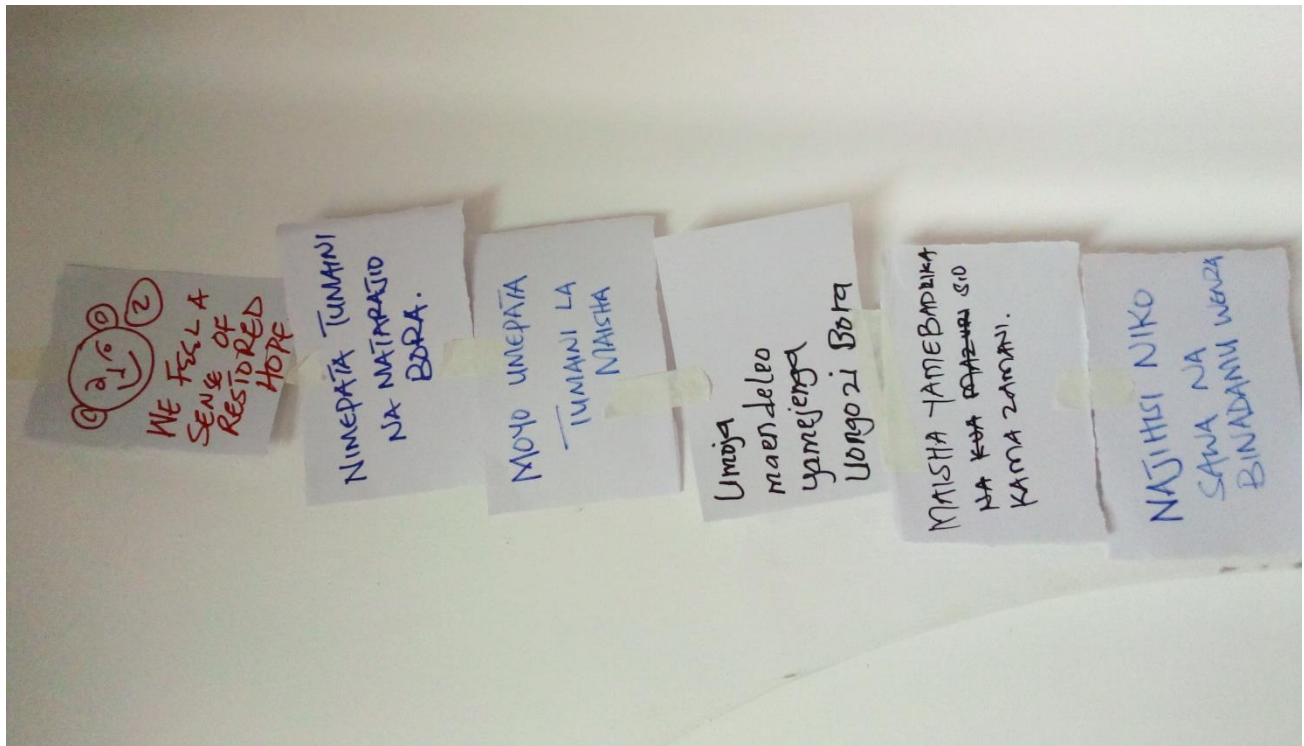 2
WE FEEL A
SENSE OF
RESTORED
HOPE
NIMEPATA TUMAINI
NA MATARAJIO
BORA.
MOYO UMEPATA
TUMAINI LA
MAISHA
Umoja
maendeleo
yamejenga
Uongozi Bora
MAISHA YAMEBADILIKA
NA KUA MAZURI SIO
KAMA ZAMANI.
NAJIHISI NIKO
SAWA NA
BINADAMU WENZA